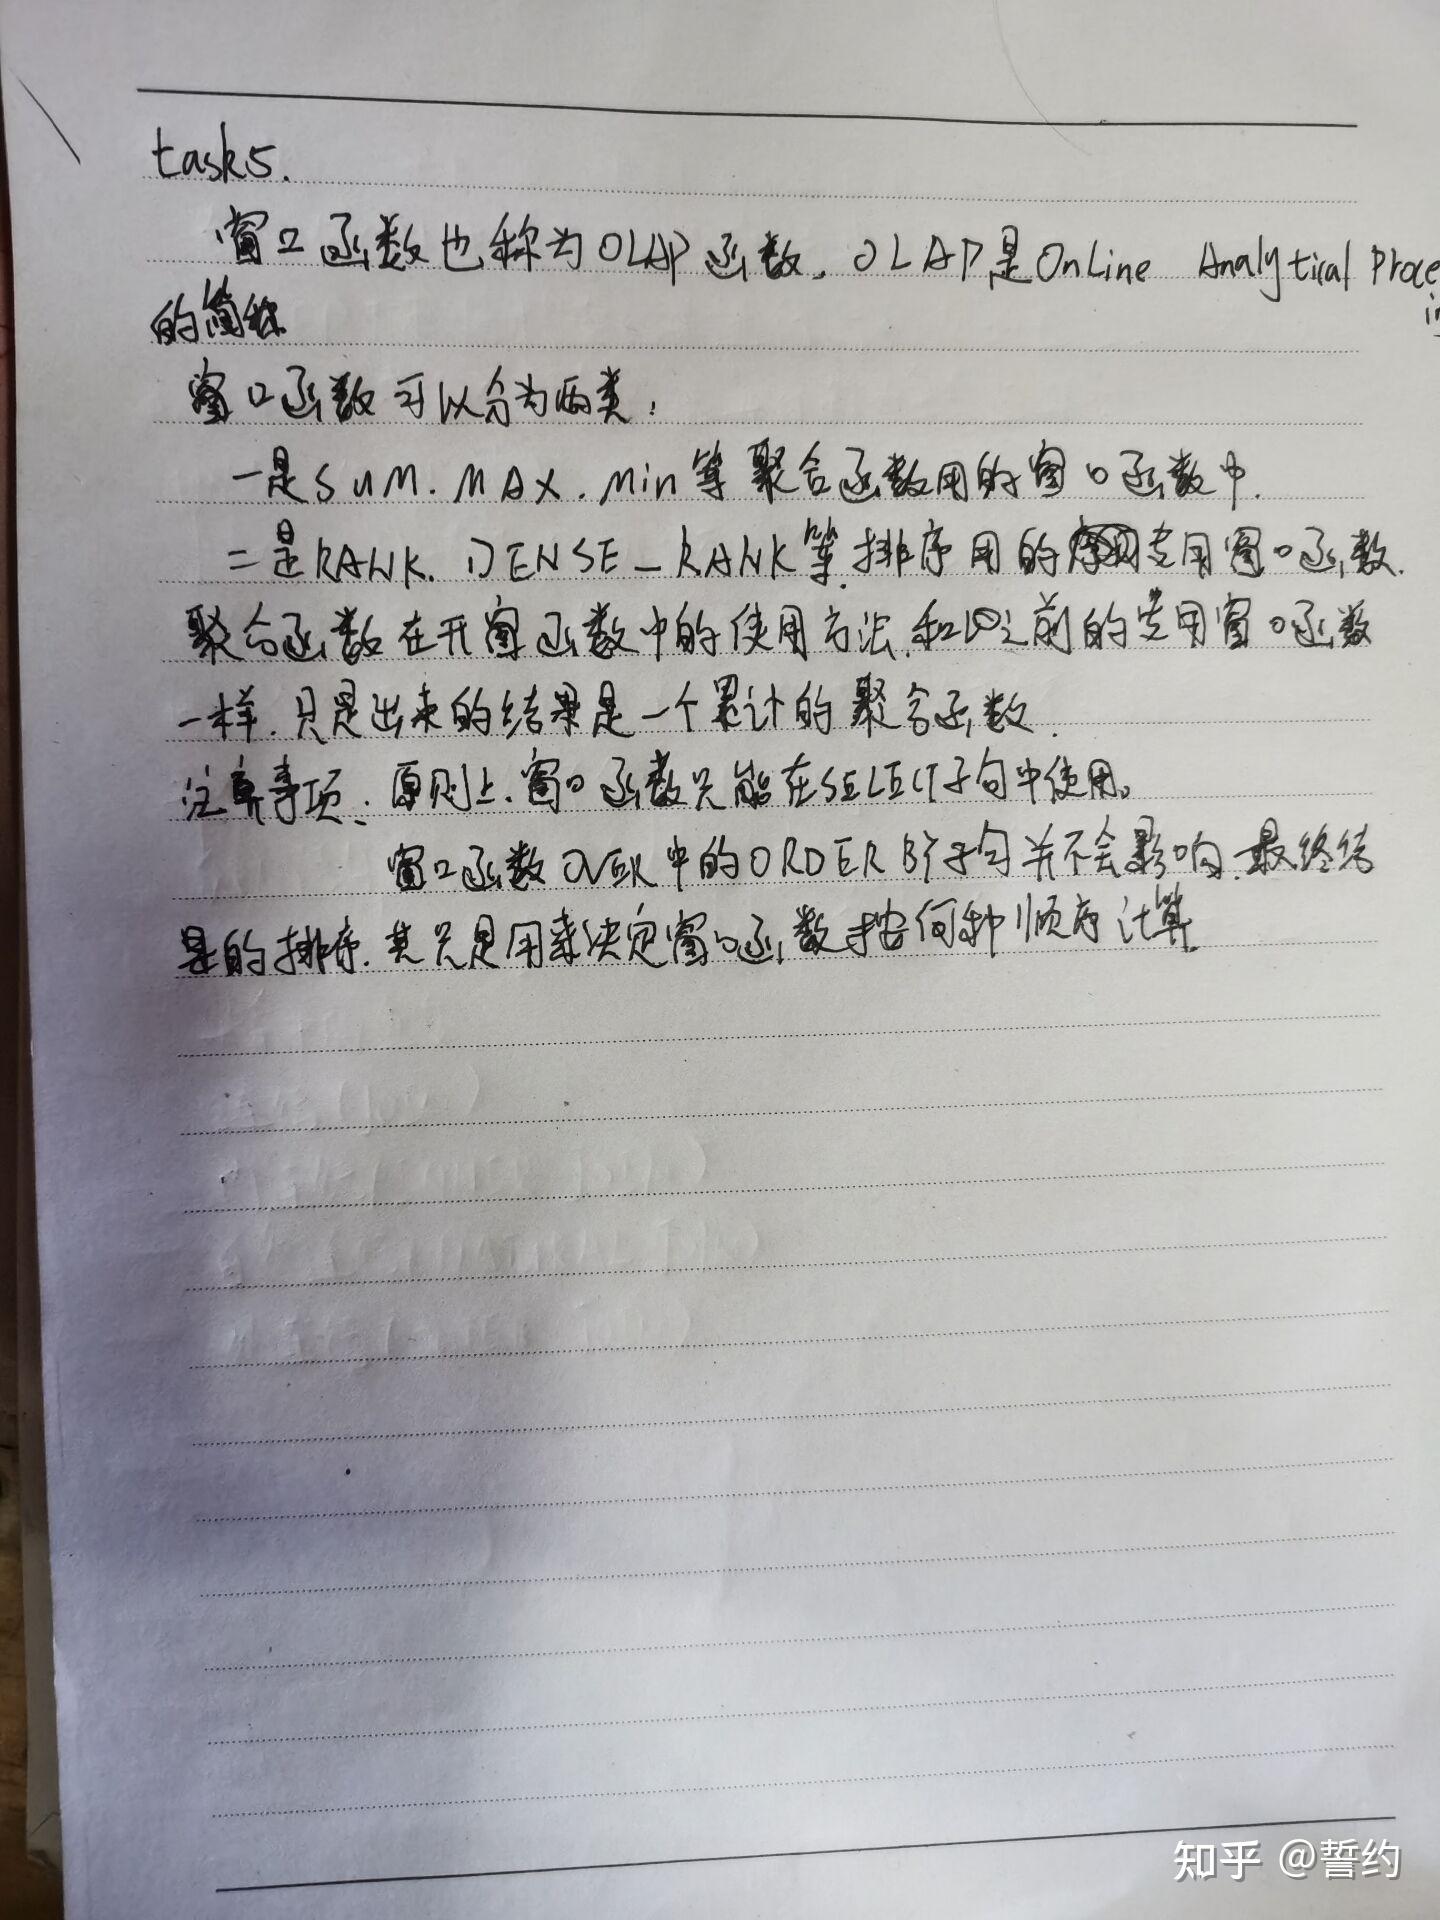 task5.
窗口函数也称为OLAP函数。OLAP是OnLine Analytical Proce
的简称
窗口函数可以分为两类:
一是SUM.MAX.Min等聚合函数用的窗口函数中.
二是RANK.DENSE_RANK等.排序用的专用窗口函数.
聚合函数在开窗函数中的使用方法.和之前的专用窗口函数
一样.只是出来的结果是一个累计的聚合函数.
注意事项、原则上.窗口函数只能在SELECT子句中使用。
窗口函数OVER中的ORDER BY子句并不会影响.最终结
果的排序.其只是用来决定窗口函数按何种顺序计算.
知乎 @誓约